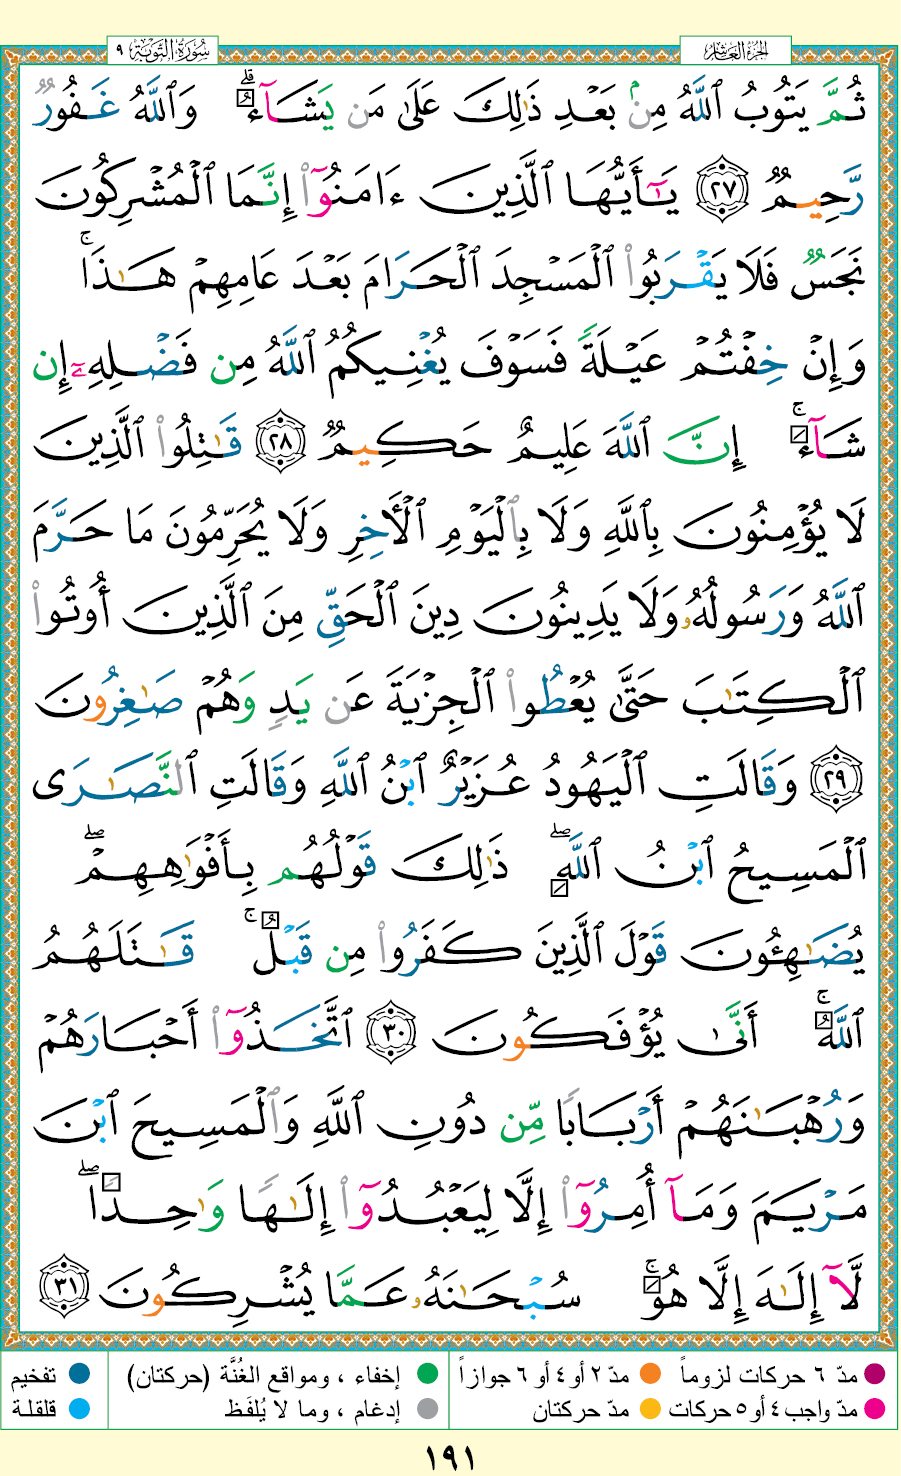 سُورَةُ التَّوْبَة ٩
الجزء العاشر
ثُمَّ يَتُوبُ ٱللَّهُ مِنۢ بَعْدِ ذَٰلِكَ عَلَىٰ مَن يَشَآءُ ۗ وَٱللَّهُ غَفُورٌ
رَّحِيمٌ ٢٧ يَـٰٓأَيُّهَا ٱلَّذِينَ ءَامَنُوٓا۟ إِنَّمَا ٱلْمُشْرِكُونَ
نَجَسٌ فَلَا يَقْرَبُوا۟ ٱلْمَسْجِدَ ٱلْحَرَامَ بَعْدَ عَامِهِمْ هَـٰذَا ۚ
وَإِنْ خِفْتُمْ عَيْلَةً فَسَوْفَ يُغْنِيكُمُ ٱللَّهُ مِن فَضْلِهِۦٓ إِن
شَآءَ ۚ إِنَّ ٱللَّهَ عَلِيمٌ حَكِيمٌ ٢٨ قَـٰتِلُوا۟ ٱلَّذِينَ
لَا يُؤْمِنُونَ بِٱللَّهِ وَلَا بِٱلْيَوْمِ ٱلْـَٔاخِرِ وَلَا يُحَرِّمُونَ مَا حَرَّمَ
ٱللَّهُ وَرَسُولُهُۥ وَلَا يَدِينُونَ دِينَ ٱلْحَقِّ مِنَ ٱلَّذِينَ أُوتُوا۟
ٱلْكِتَـٰبَ حَتَّىٰ يُعْطُوا۟ ٱلْجِزْيَةَ عَن يَدٍ وَهُمْ صَـٰغِرُونَ
٢٩ وَقَالَتِ ٱلْيَهُودُ عُزَيْرٌ ٱبْنُ ٱللَّهِ وَقَالَتِ ٱلنَّصَـٰرَى
ٱلْمَسِيحُ ٱبْنُ ٱللَّهِ ۖ ذَٰلِكَ قَوْلُهُم بِأَفْوَٰهِهِمْ ۖ
يُضَـٰهِـُٔونَ قَوْلَ ٱلَّذِينَ كَفَرُوا۟ مِن قَبْلُ ۚ قَـٰتَلَهُمُ
ٱللَّهُ ۚ أَنَّىٰ يُؤْفَكُونَ ٣٠ ٱتَّخَذُوٓا۟ أَحْبَارَهُمْ
وَرُهْبَـٰنَهُمْ أَرْبَابًا مِّن دُونِ ٱللَّهِ وَٱلْمَسِيحَ ٱبْنَ
مَرْيَمَ وَمَآ أُمِرُوٓا۟ إِلَّا لِيَعْبُدُوٓا۟ إِلَـٰهًا وَٰحِدًا ۖ
لَّآ إِلَـٰهَ إِلَّا هُوَ ۚ سُبْحَـٰنَهُۥ عَمَّا يُشْرِكُونَ ٣١
مدّ ٦ حركات لزوماً مدّ ٢ أو ٤ أو ٦ جوازاً إخفاء ، ومواقع الغُنَّة (حركتان) تفخيم
مدّ واجب ٤ أو ٥ حركات مدّ حركتان إدغام ، وما لا يُلفَظ قلقلة
١٩١